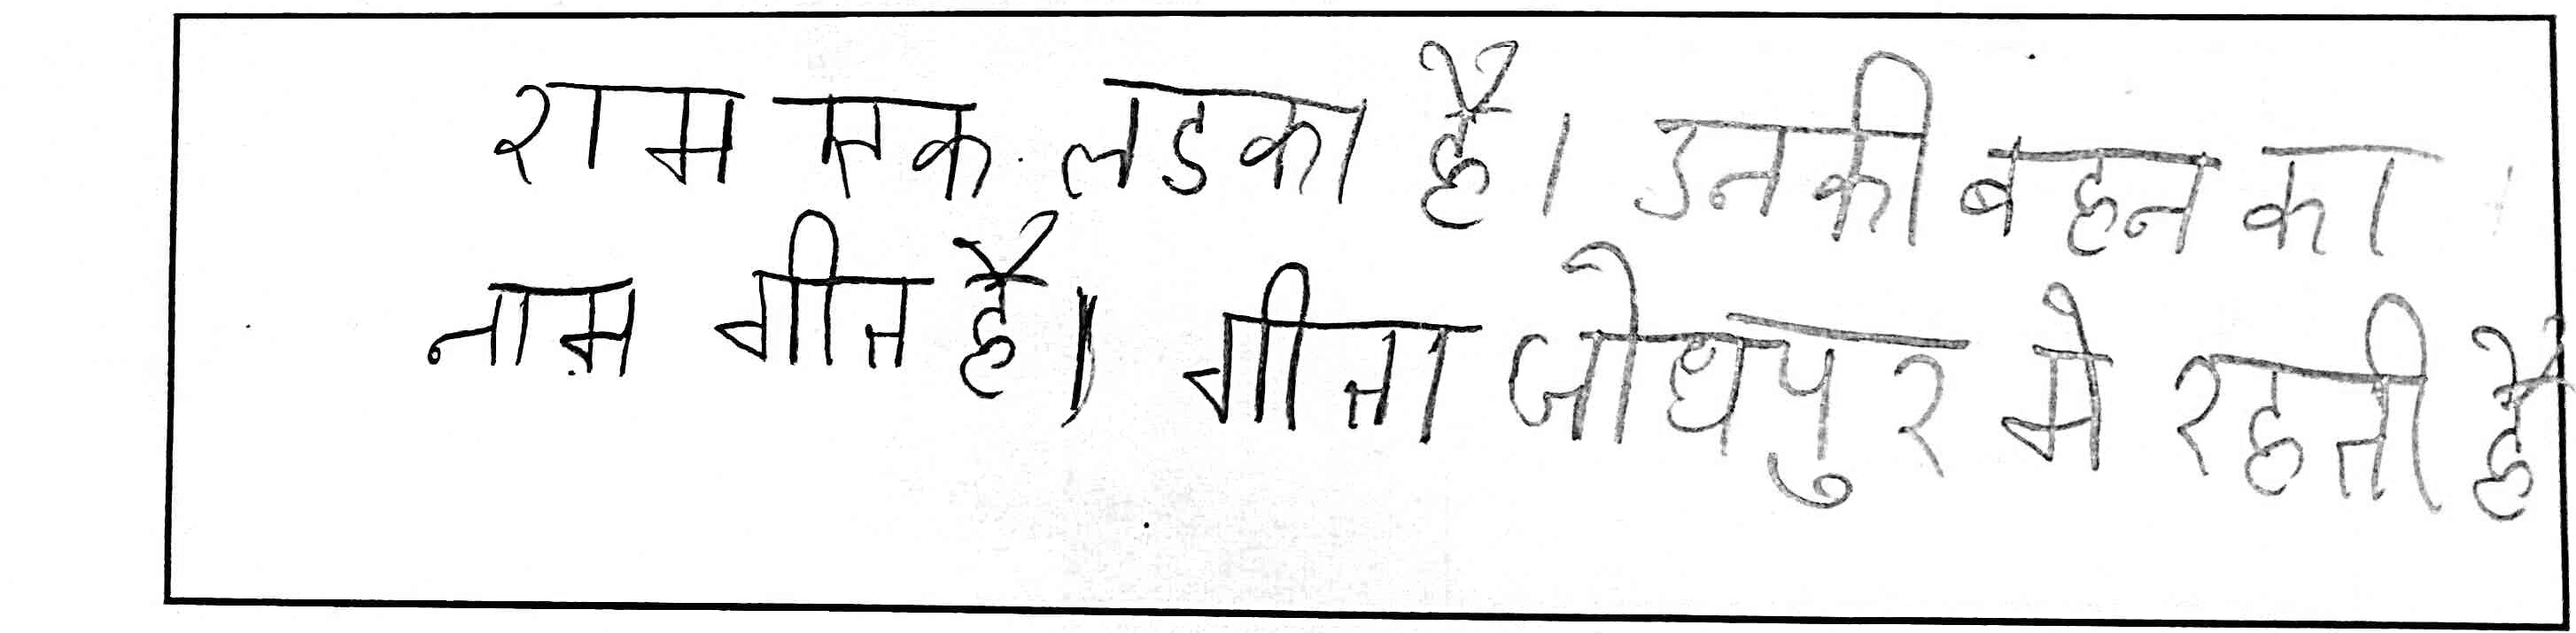 राम एक लडका है। उनकी बहन का
नाम गीत है। गीता जोधपुर मे रहती है